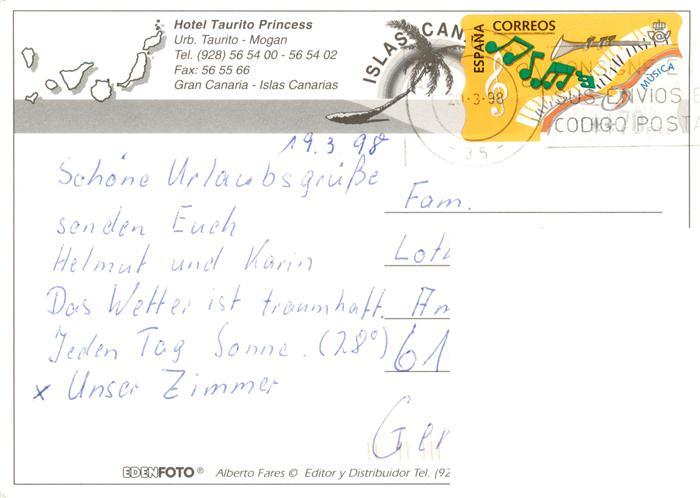 Hotel Taurito Princess
Urb. Taurito - Mogan
Tel. (928) 56 54 00 - 56 54 02
Fax: 56 55 66
Gran Canaria - Islas Canarias
ISLAS CANA
ESPAÑA
CORREOS
MÚSICA
CONSIGNE E
3-98
SUS ENVIOS E
CODIGO POSTA
-35-
19.3.98
Schöne Urlaubsgrüße
senden Euch
Helmut und Karin
Das Wetter ist traumhaft.
Jeden Tag Sonne. (28°)
x Unser Zimmer
Fam.
Loth
Am
61
Ger
EDENFOTO® Alberto Fares © Editor y Distribuidor Tel. (92